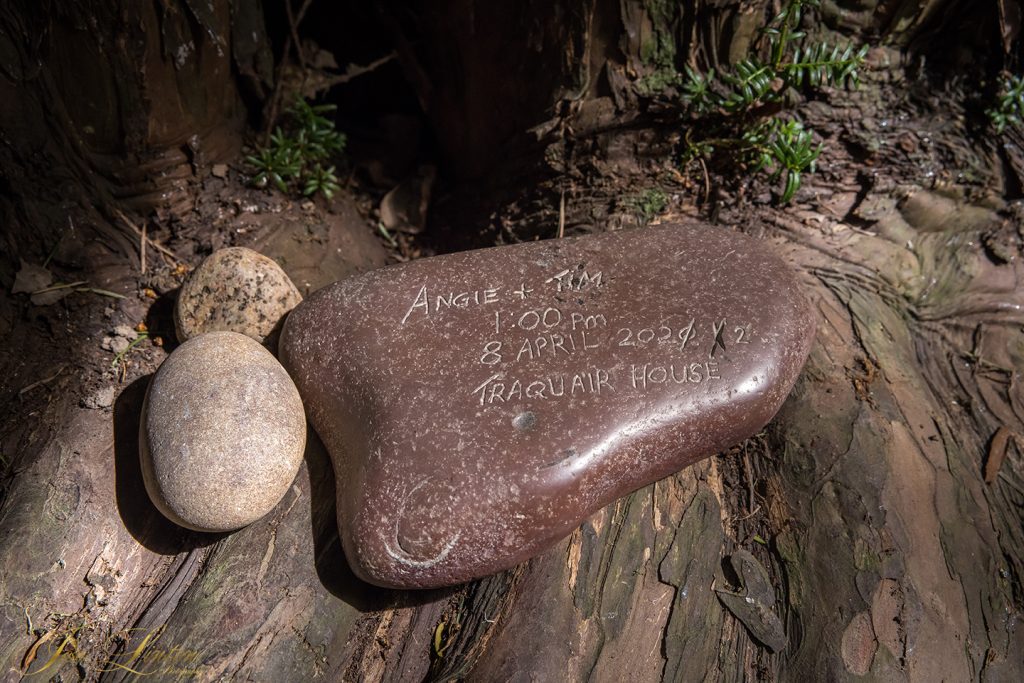 ANGIE + TIM
1:00 pm
8 APRIL 202
TRAQUAIR HOUSE